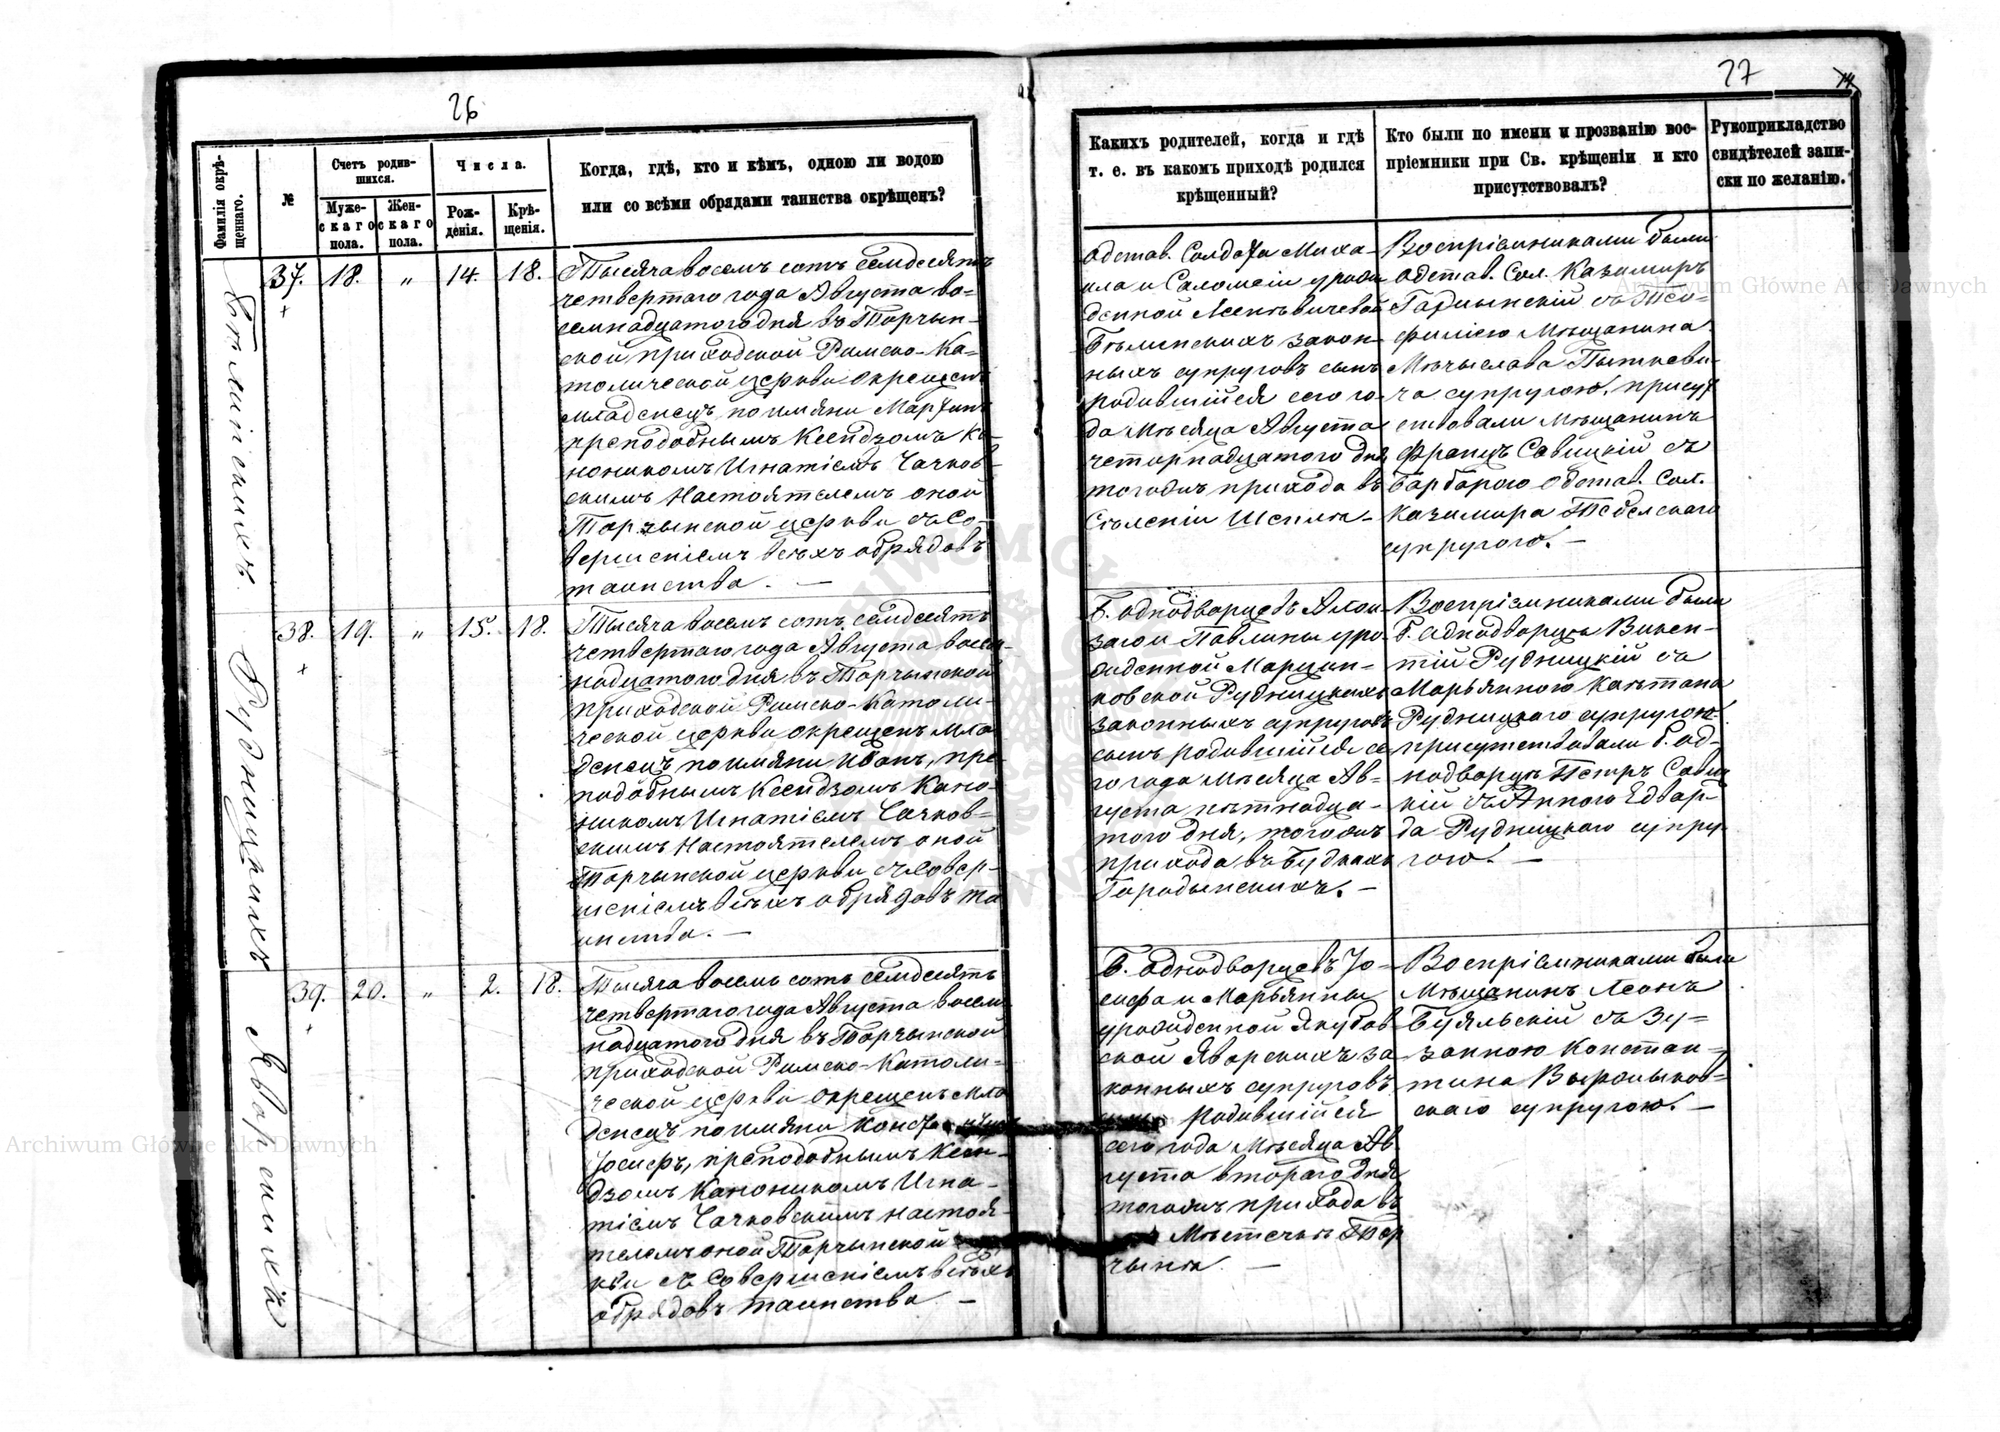 26
Фамилія окрѣ-
щеннаго.
№
Счетъ родив-
шихся.
Муже-
скаго
пола.
Жен-
скаго
пола.
Числа.
Рож-
денія.
Крѣ-
щенія.
Когда, гдѣ, кто и кѣмъ, одною ли водою
или со всѣми обрядами таинства окрѣщенъ?
37.
18.
"
14.
18.
Тысяча восемъ сотъ семдесятъ
четвертаго года Августа во-
семнадцатого дня въ Торчын-
ской приходской Римско-Ка-
толической церкви окрещенъ
младенецъ по имяни Мартинъ
преподобнымъ Ксендзомъ Ка-
ноникомъ Игнатіемъ Чачков-
скимъ Настоятелемъ оной
Торчынской церкви съ Со-
вершеніемъ всѣхъ обрядовъ
таинства. —
38.
19.
"
15.
18.
Рудницкихъ
Тысяча восемъ сотъ семдесятъ
четвертаго года Августа восем-
надцатого дня въ Торчынской
приходской Римско-Католи-
ческой церкви окрещенъ мла
денецъ по имяни Иванъ, пре-
подобнымъ Ксендзомъ Кано-
никомъ Игнатіемъ Чачков-
скимъ Настоятелемъ оной
Торчынской церкви съ Совер-
шеніемъ всѣхъ обрядовъ та
инства. —
39.
20.
"
2.
18.
Яворскихъ
Тысяча восемь сотъ семдесятъ
четвертаго года Августа восем
надцатого дня въ Торчынской
приходской Римско-Католи-
ческой церкви окрещенъ мла
денецъ по имяни
Іосифъ, преподобнымъ Ксен-
дзомъ Каноникомъ Игна-
тіемъ Чачковскимъ Настоя-
телемъ оной Торчынской
кви съ Совершеніемъ всѣхъ
обрядовъ таинства —
27
14
Какихъ родителей, когда и гдѣ
т. е. въ какомъ приходѣ родился
крѣщенный?
Кто были по имени и прозванію вос-
пріемники при Св. крѣщеніи и кто
присутствовалъ?
Рукоприкладство
свидѣтелей запи-
ски по желанію.
Одстав. Солдата Миха-
ила и Саломеіи урож
денной
законныхъ супруговъ сынъ
родившійся сего го-
да Мѣсяца Августа
четырнадцатого дня
тогожъ прихода въ
Воспріемниками были
Одстав. Сол. Казимиръ
съ Тео-
филіею Мѣщанина
Мѣчыслава
супругою. присут
ствовали Мѣщанинъ
Францъ Савицкій съ
Барбарою Одстав. Сол.
Казимира
супругою. —
Б. однодворцевъ Алои
заго и Павлины уро
жденной Марцин-
ковской Рудницкихъ
законныхъ супруговъ
сынъ родившійся се
го года Мѣсяца Ав-
густа пятнадца-
того дня, тогожъ
прихода въ Будкахъ
Городынскихъ. —
Воспріемниками были
Б. однодворцы Викен-
тій Рудницкій съ
Марьянною Каетана
Рудницкаго супругою
присутствовали Б. од-
нодворцы Петръ Савиц
кій съ Анною Едвар-
да Рудницкаго супру-
гою. —
Б. однодворцевъ Іо-
сифа и Марьянны
урожденной Якубов
ской Яворскихъ за
конныхъ супруговъ
родившійся
сего года Мѣсяца Ав
густа втораго дня
тогожъ прихода въ
Мѣстечкѣ Тор
чынѣ. —
Воспріемниками были
Мѣщанинъ Леонъ
Буяльскій съ Зу-
занною Констан-
тина
скаго супругою. —
Archiwum Główne Akt Dawnych
Archiwum Główne Akt Dawnych